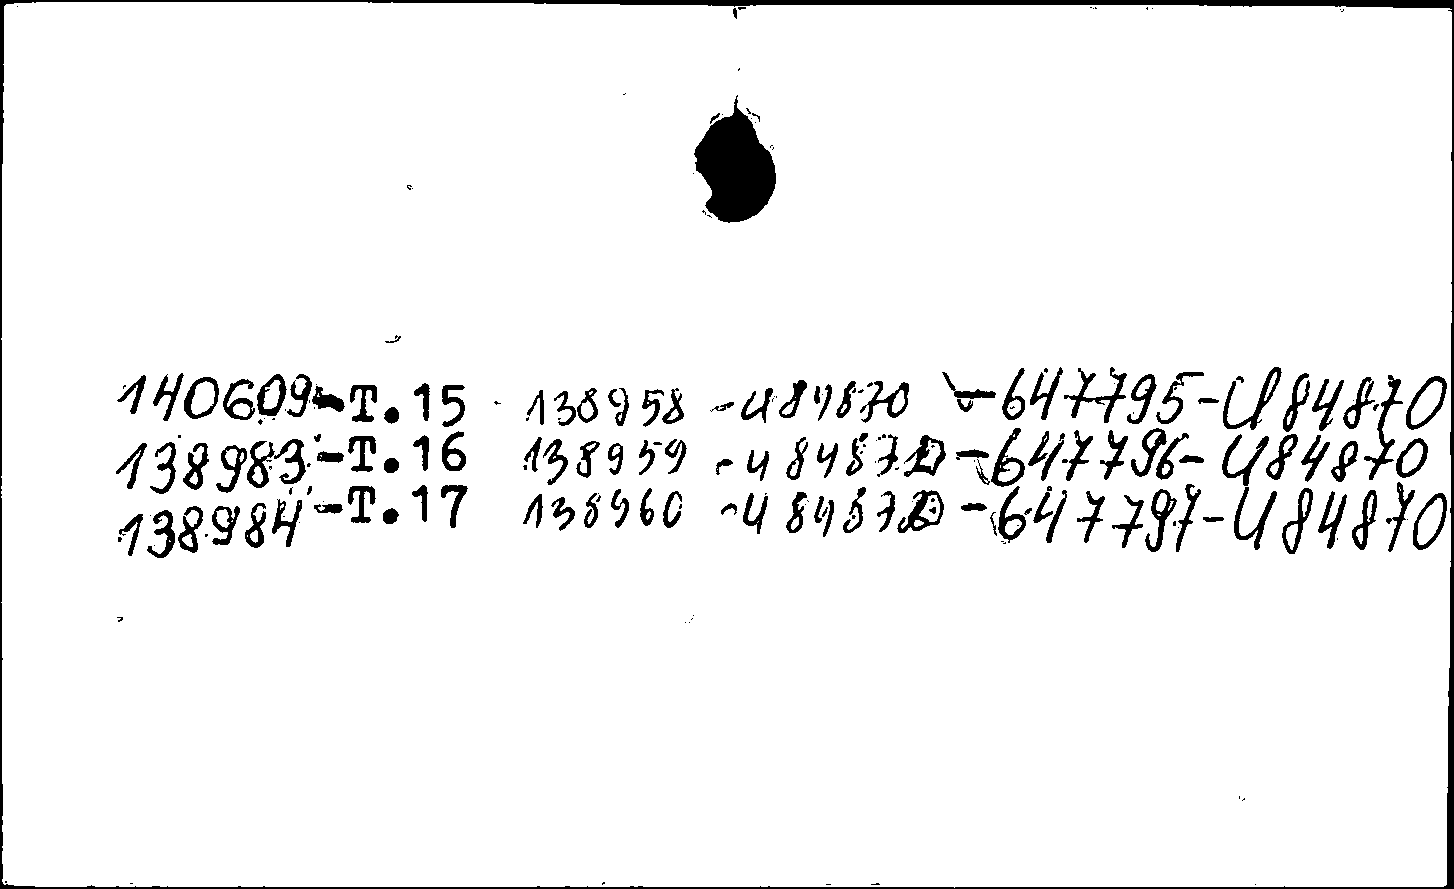 140609-T.15 138958 -U84870 -647795-U84870
138983-T.16 138959 -U84870 -647796-U84870
138984-T.17 138960 -U84870 -647797-U84870